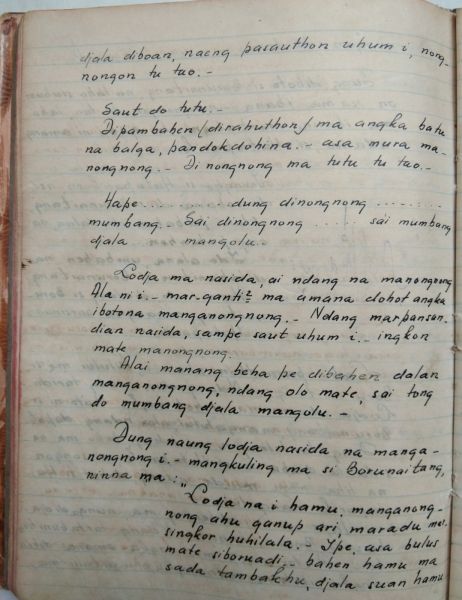 djala diboan, naeng pasauthon uhum i, nong-
nongon tu tao. -
Saut do tutu. -
Dipambahen /dirahuthon/ ma angka batu
na balga, pandokdohina. - asa mura ma-
nongnong. - Di nongnong ma tutu tu tao. -
Hape ........ dung dinongnong ........
mumbang. Sai dinongnong ...... sai mumbang
djala mangolu. -
Lodja ma nasida, ai ndang na manongnong
Ala ni i. - mar-ganti2 ma amana dohot angka
ibotona manganongnong. - Ndang marpansan-
dian nasida, sampe saut uhum i. - ingkon
mate manongnong.
Alai manang beha pe dibahen dalan
manganongnong, ndang olo mate, sai tong
do mumbang djala mangolu. -
Dung naung lodja nasida na manga-
nongnong i. - mangkuling ma si Borunaitang,
ninna ma : "
Lodja na i hamu, manganong-
nong ahu ganup ari, maradu
singkor huhilala. - Ipe, asa bulus
mate siboruadi, - bahen hamu ma
sada tambakhu, djala suan hamu